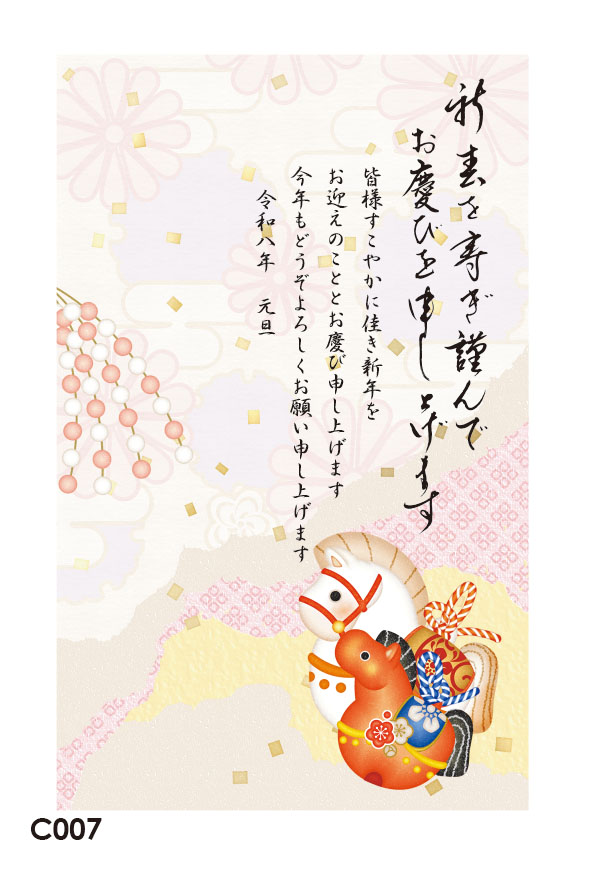 新春を寿ぎ謹んで
お慶びを申し上げます
皆様すこやかに佳き新年を
お迎えのこととお慶び申し上げます
今年もどうぞよろしくお願い申し上げます
令和八年 元旦
C007